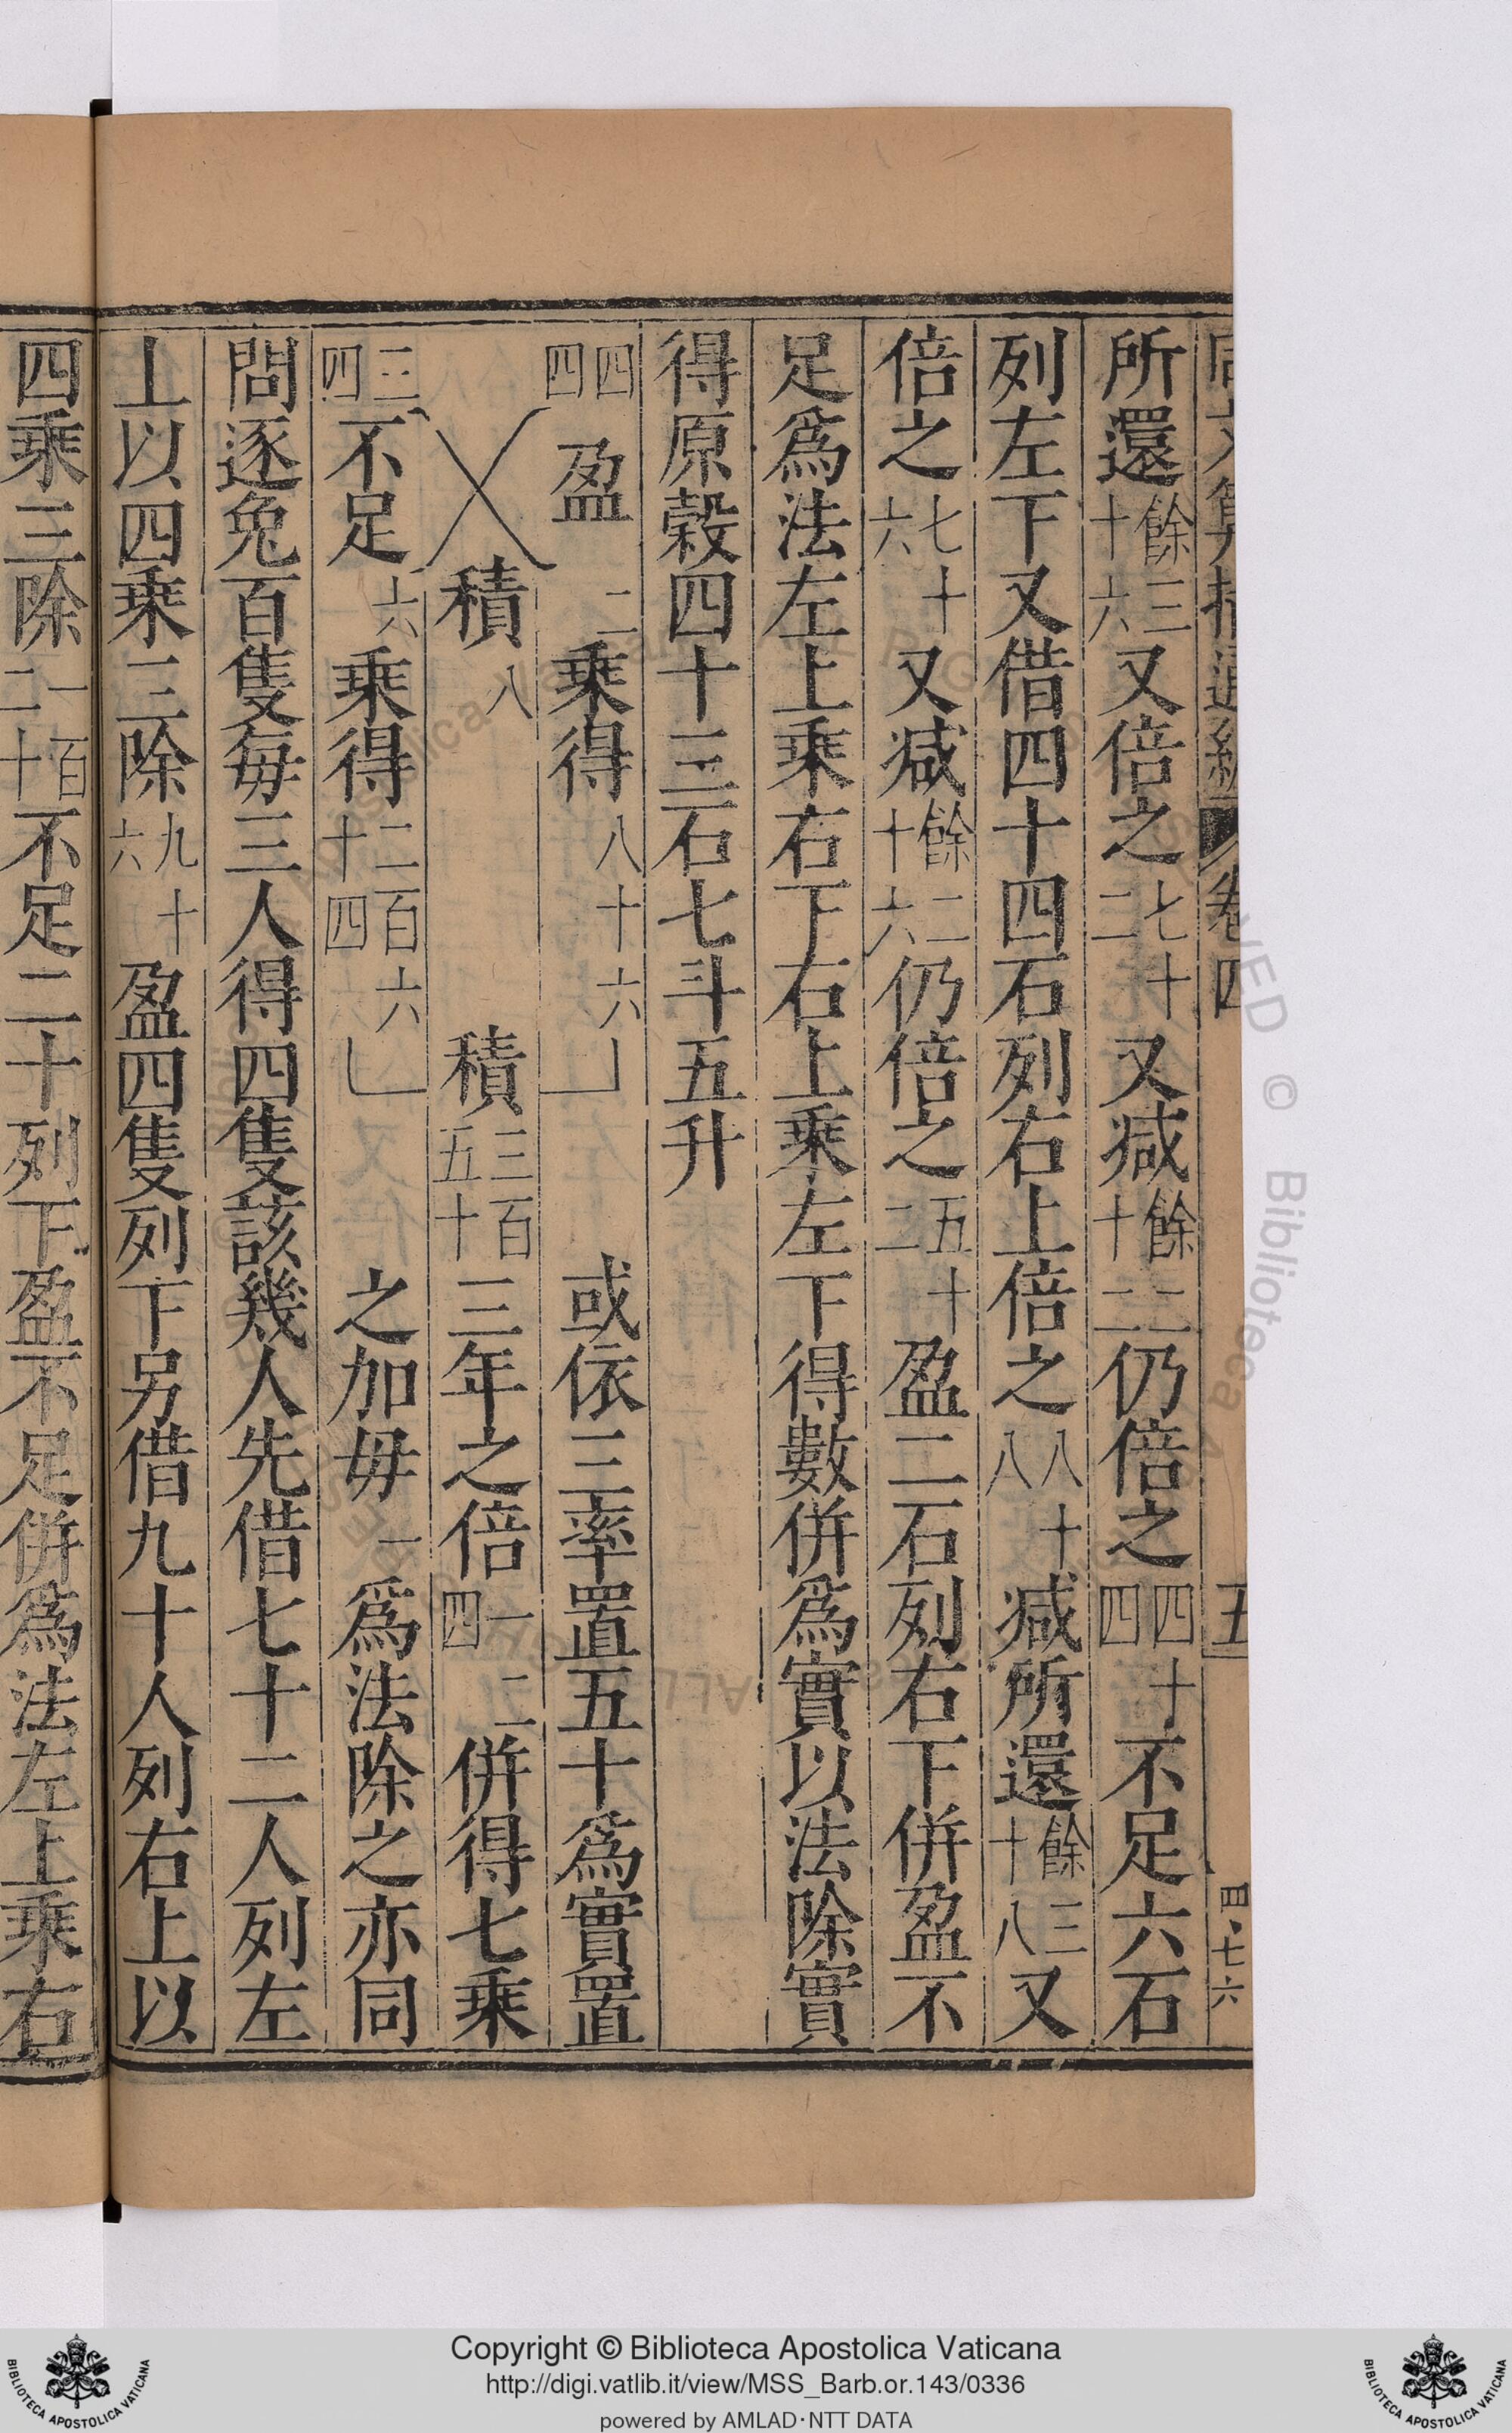 同文算指通編 卷四 五 四七六
所還餘三十六又倍之七十二又減餘二十二仍倍之四十四不足六石
列左下又借四十四石列右上倍之八十八減所還餘三十八又
倍之七十六又減餘二十六仍倍之五十二盈二石列右下併盈不
足爲法左上乘右下右上乘左下得數併爲實以法除實
得原穀四十三石七斗五升
四四 盈 二乘得八十六 或依三率置五十爲實置
積八 積三百五十 三年之倍一二四併得七乘
四三 不足六乘得二百六十四 之加毋一爲法除之亦同
問逐兔百隻每三人得四隻該幾人先借七十二人列左
上以四乘三除九十六盈四隻列下另借九十人列右上以
四乘三除一百二十不足二十列下盈不足併爲法左上乘右
Copyright © Biblioteca Apostolica Vaticana
http://digi.vatlib.it/view/MSS_Barb.or.143/0336
powered by AMLAD·NTT DATA
BIBLIOTECA APOSTOLICA VATICANA
BIBLIOTECA APOSTOLICA VATICANA